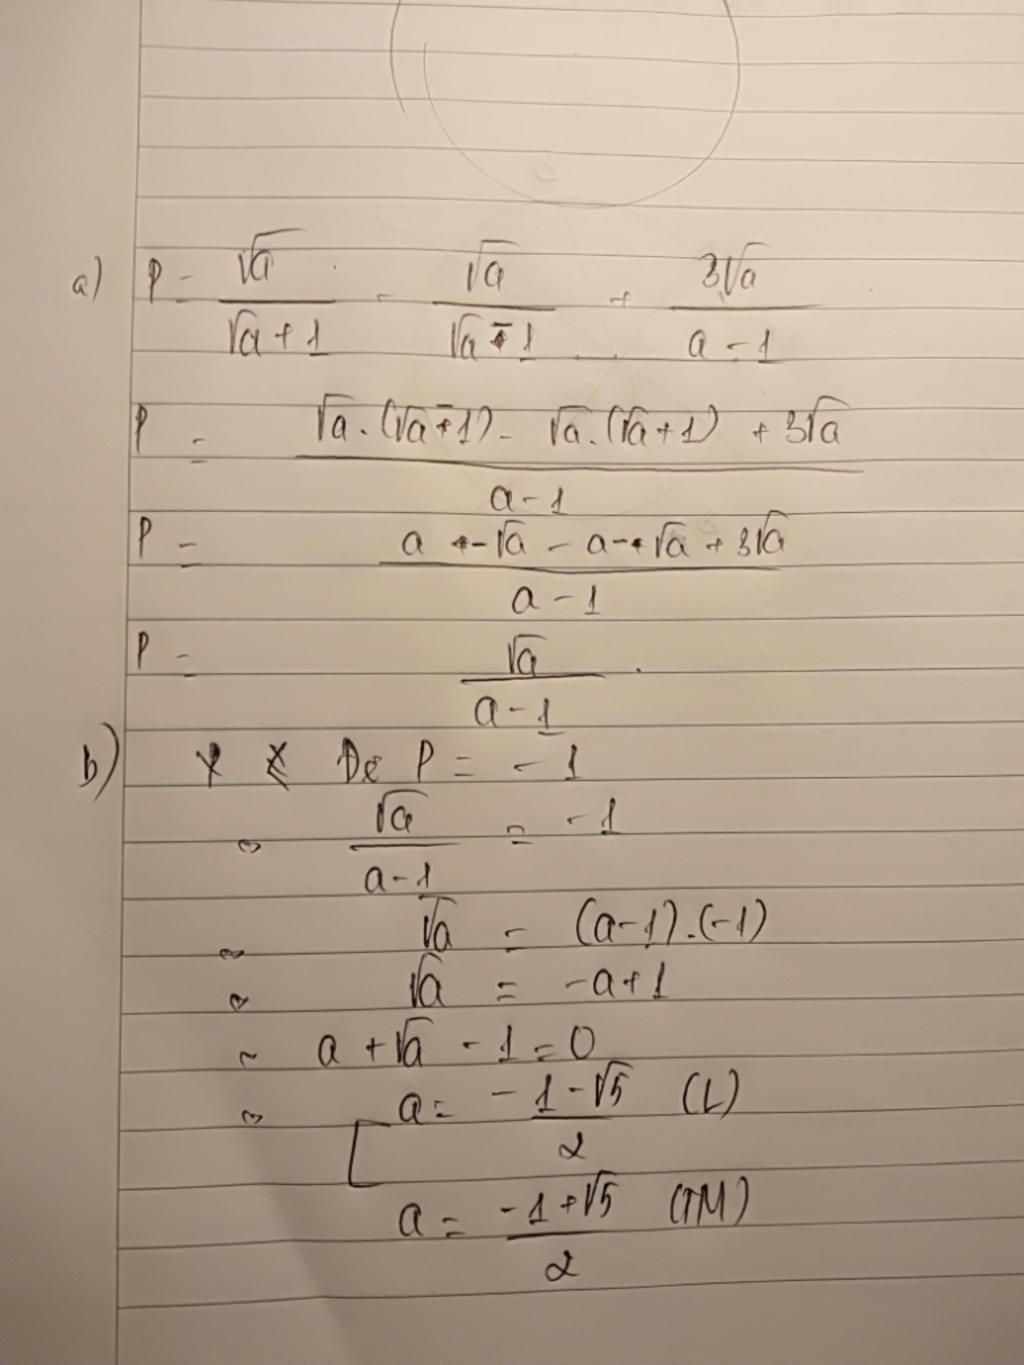 a) P = √a / (√a + 1) - √a / (√a - 1) + 3√a / (a - 1)
P = (√a . (√a - 1) - √a . (√a + 1) + 3√a) / (a - 1)
P = (a - √a - a - √a + 3√a) / (a - 1)
P = √a / (a - 1)
b) Để P = - 1
⇔ √a / (a - 1) = - 1
⇔ √a = (a - 1) . (-1)
⇔ √a = -a + 1
⇔ a + √a - 1 = 0
⇔ [ a = (-1 - √5) / 2 (L)
a = (-1 + √5) / 2 (TM)